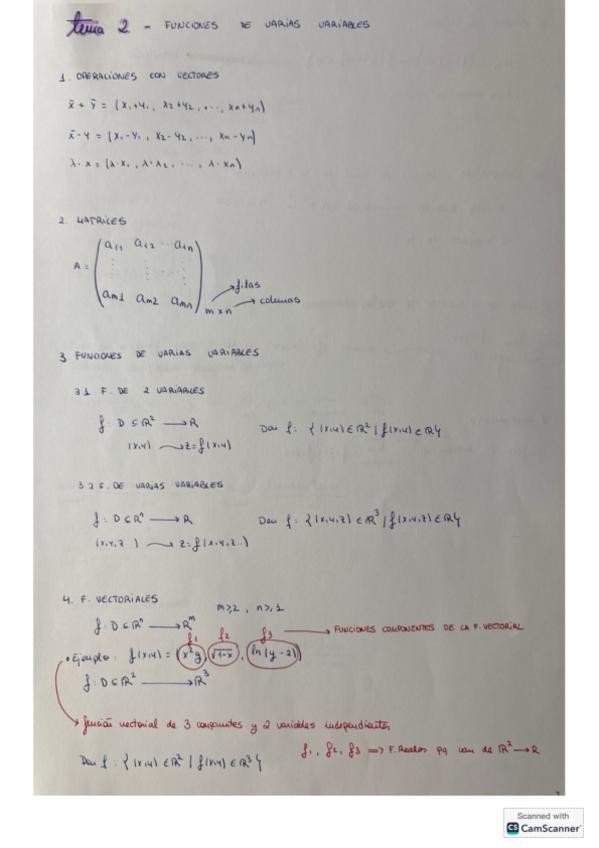 tema 2 - FUNCIONES DE VARIAS VARIABLES
1. OPERACIONES CON VECTORES
x̄ + ȳ = (x₁+y₁, x₂+y₂, ..., xn+yn)
x̄ - y = (x₁-y₁, x₂-y₂, ..., xn-yn)
λ· x = (λ·x₁, λ·x₂, ..., λ·xn)
2. MATRICES
A = ( a₁₁ a₁₂ ... a₁n
am1 am2 amn ) m×n
filas
columnas
3 FUNCIONES DE VARIAS VARIABLES
3.1 F. DE 2 VARIABLES
f: D ⊆ ℝ² → R
Dom f: {(x,y) ∈ ℝ² | f(x,y) ∈ ℝ}
(x,y) → z=f(x,y)
3.2 F. DE VARIAS VARIABLES
f: D ⊂ ℝⁿ → R
Dom f: {(x,y,z) ∈ ℝ³ | f(x,y,z) ∈ ℝ}
(x,y,z..) → z=f(x,y,z..)
4. F. VECTORIALES
m≥2, n≥1
f: D ⊂ ℝⁿ → ℝᵐ
f₁ f₂ f₃ → FUNCIONES COMPONENTES DE LA F. VECTORIAL
• Ejemplo: f(x,y) = (x²y, √1-x, ln(y-2))
f: D ⊂ ℝ² → ℝ³
función vectorial de 3 componentes y 2 variables independientes
f₁, f₂, f₃ ⇒ F. Reales pq van de ℝ² → R
Dom f: {(x,y) ∈ ℝ² | f(x,y) ∈ ℝ³}
Scanned with
CS CamScanner